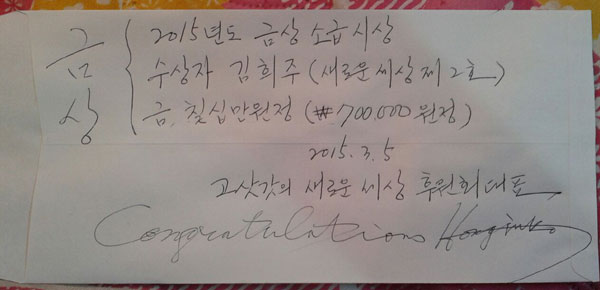 금상
2015년도 금상 소급시상
수상자 김희주 (새로운 세상 제2호)
금, 칠십만원정 (₩700,000원정)
2015.3.5
고삿갓의 새로운 세상 후원회대표
Congratulations